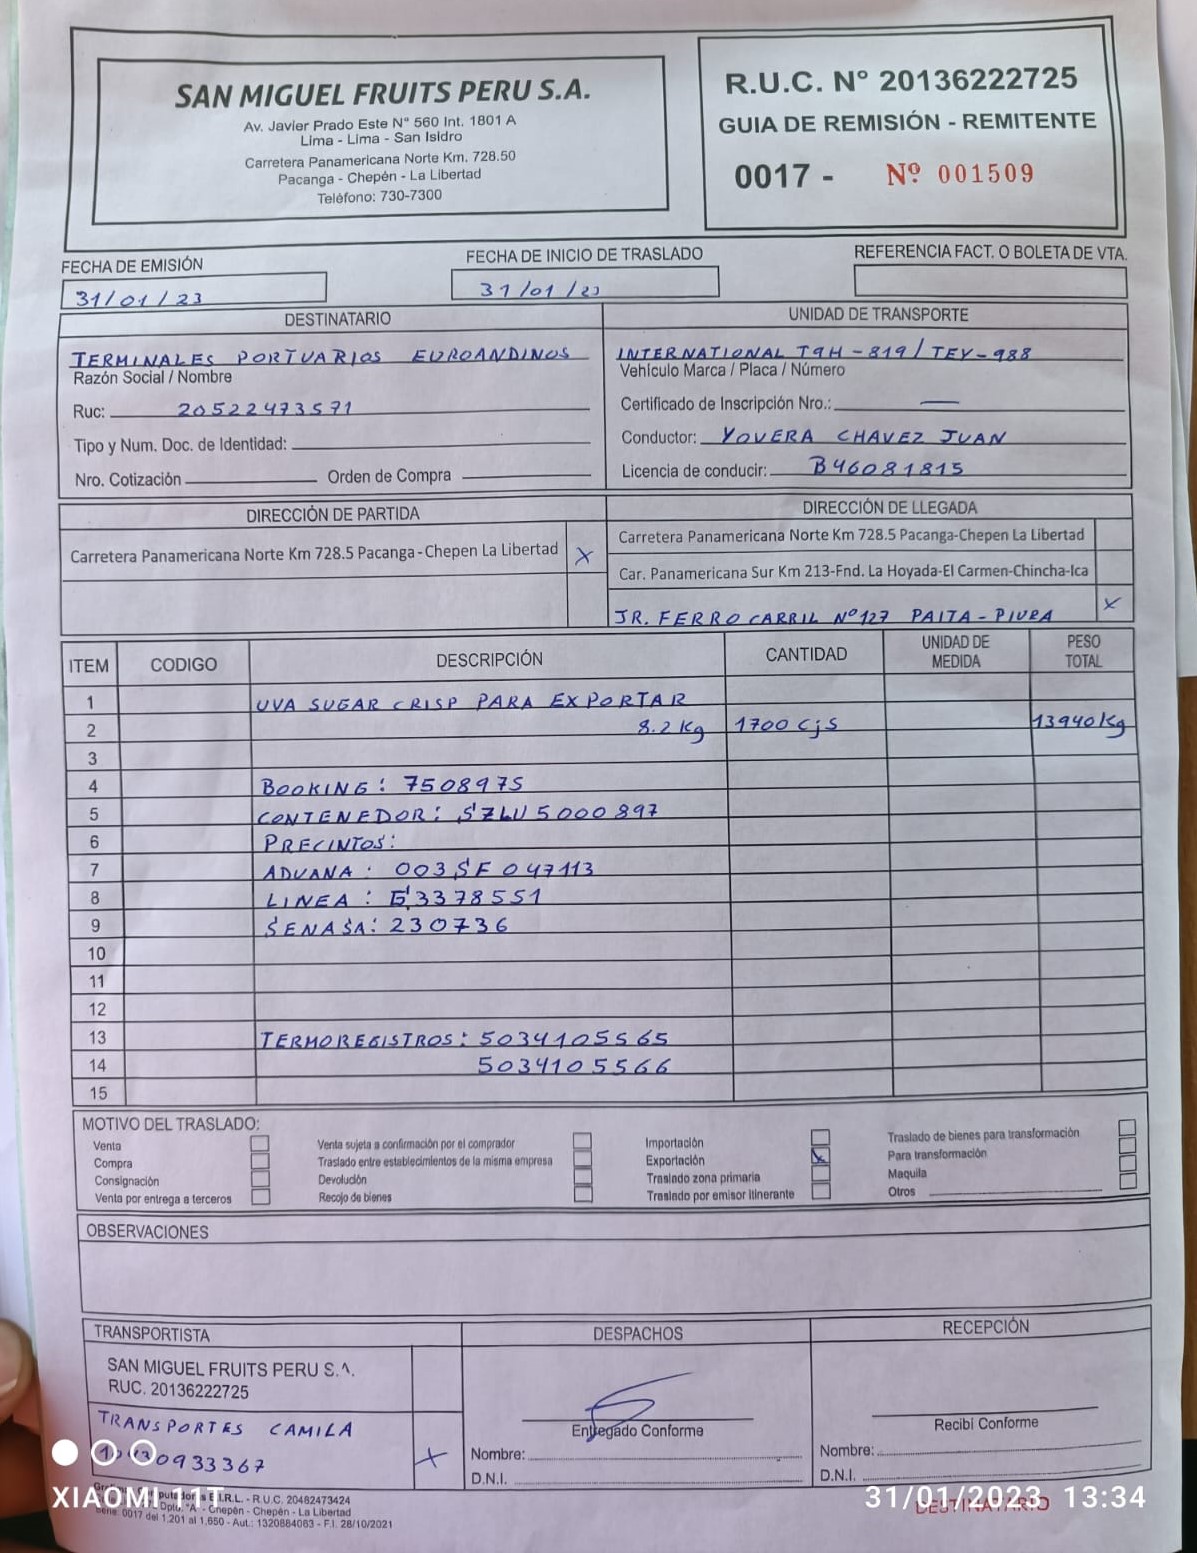 SAN MIGUEL FRUITS PERU S.A.
Av. Javier Prado Este N° 560 Int. 1801 A
Lima - Lima - San Isidro
Carretera Panamericana Norte Km. 728.50
Pacanga - Chepén - La Libertad
Teléfono: 730-7300
R.U.C. N° 20136222725
GUIA DE REMISIÓN - REMITENTE
0017 - Nº 001509
FECHA DE EMISIÓN
31/01/23
FECHA DE INICIO DE TRASLADO
31/01/23
REFERENCIA FACT. O BOLETA DE VTA.
DESTINATARIO
TERMINALES PORTUARIOS EUROANDINOS
Razón Social / Nombre
Ruc: 20522473571
Tipo y Num. Doc. de Identidad:
Nro. Cotización Orden de Compra
UNIDAD DE TRANSPORTE
INTERNATIONAL T9H-819/TEY-988
Vehículo Marca / Placa / Número
Certificado de Inscripción Nro.: —
Conductor: YOVERA CHAVEZ JUAN
Licencia de conducir: B46081815
DIRECCIÓN DE PARTIDA
Carretera Panamericana Norte Km 728.5 Pacanga-Chepen La Libertad X
DIRECCIÓN DE LLEGADA
Carretera Panamericana Norte Km 728.5 Pacanga-Chepen La Libertad
Car. Panamericana Sur Km 213-Fnd. La Hoyada-El Carmen-Chincha-Ica
JR. FERROCARRIL Nº127 PAITA-PIURA X
ITEM CODIGO DESCRIPCIÓN CANTIDAD UNIDAD DE MEDIDA PESO TOTAL
1 UVA SUGAR CRISP PARA EXPORTAR
2 8.2 Kg 1700 cjs 13940 Kg
3
4 BOOKING: 7508975
5 CONTENEDOR: SZLU5000897
6 PRECINTOS:
7 ADUANA: 003SF047113
8 LINEA: 3378551
9 SENASA: 230736
10
11
12
13 TERMOREGISTROS: 5034105565
14 5034105566
15
MOTIVO DEL TRASLADO:
Venta
Compra
Consignación
Venta por entrega a terceros
Venta sujeta a confirmación por el comprador
Traslado entre establecimientos de la misma empresa
Devolución
Recojo de bienes
Importación
Exportación X
Traslado zona primaria
Traslado por emisor itinerante
Traslado de bienes para transformación
Para transformación
Maquila
Otros
OBSERVACIONES
TRANSPORTISTA
SAN MIGUEL FRUITS PERU S.A.
RUC. 20136222725
TRANSPORTES CAMILA
0933367 X
DESPACHOS
Entregado Conforme
Nombre:
D.N.I.
RECEPCIÓN
Recibí Conforme
Nombre:
D.N.I.
E.I.R.L. - R.U.C. 20482473424
Dpto. "A" - Chepén - Chepén - La Libertad
Serie: 0017 del 1,201 al 1,650 - Aut.: 1320884063 - F.I. 28/10/2021
DESTINATARIO
XIAOMI 11T
31/01/2023 13:34